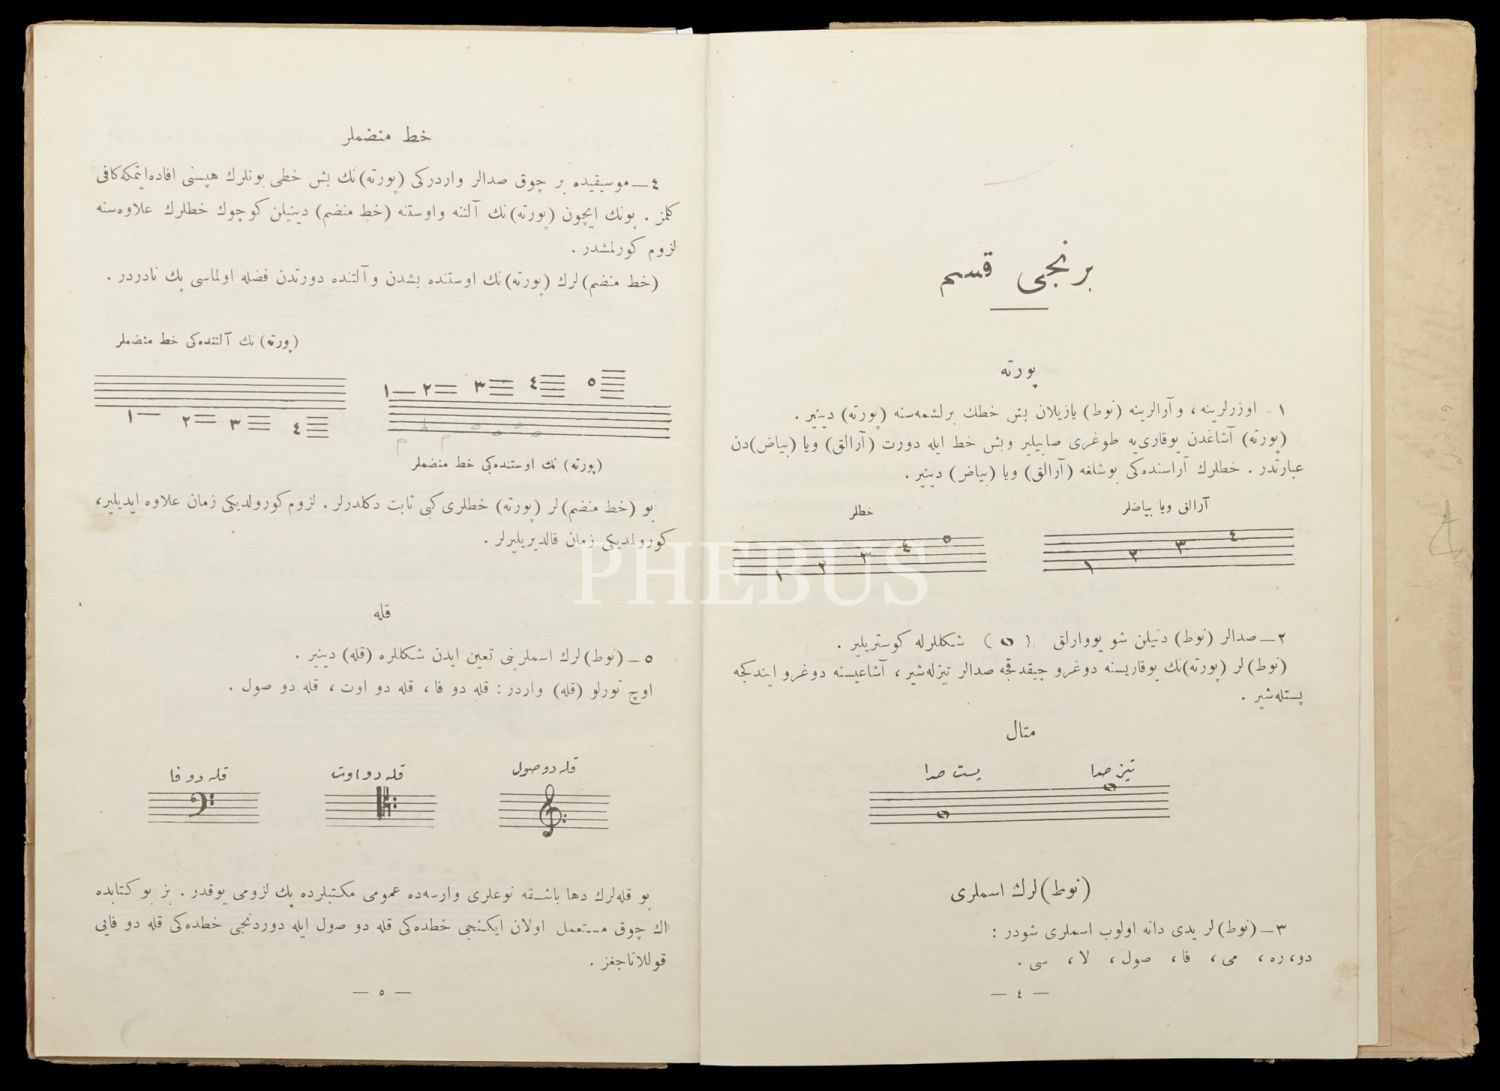 برنجی قسم
پورته
١ـ اوزرلرینه، و آرالرینه (نوط) یازیلان بش خطك برلشمه‌سنه (پورته) دینیر .
(پورته) آشاغدن یوقاری‌یه طوغری صاییلیر وبش خط ایله دورت (آرالق) ویا (بیاض)دن
عبارتدر . خطلرك آراسنده‌كی بوشلغه (آرالق) ویا (بیاض) دینیر.
آرالق ویا بیاضلر
خطلر
١ ٢ ٣ ٤
١ ٢ ٣ ٤ ٥
٢ـ صدالر (نوط) دنیلن شو یووارلق ( ) شكللرله كوستریلیر .
(نوط)لر (پورته)نك یوقاریسنه دوغرو چیقدقجه صدالر تیزله‌شیر ، آشاغیسنه دوغرو ایندكجه
پستله‌شیر .
مثال
تیز صدا
پست صدا
(نوط)لرك اسملری
٣ـ (نوط)لر یدی دانه اولوب اسملری شودر :
دو، ره، می، فا، صول، لا، سی .
— ٤ —
خط منضملر
٤ـ موسیقیده بر چوق صدالر واردركی (پورته)نك بش خطی بونلرك هپسنی افاده‌ایتمكه‌كافی
كلمز . بونك ایچون (پورته)نك آلتنه واوستنه (خط منضم) دینیلن كوچوك خطلرك علاوه‌سنه
لزوم كورلمشدر .
(خط منضم)لرك (پورته)نك اوستنده بشدن و آلتنده دورتدن فضله اولماسی پك نادردر .
(پورته) نك آلتنده‌كی خط منضملر
١ ٢ ٣ ٤ ٥
١ ٢ ٣ ٤
(پورته) نك اوستنده‌كی خط منضملر
بو (خط منضم)لر (پورته) خطلری كبی ثابت دكلدرلر . لزوم كورولدیكی زمان علاوه ایدیلیر،
كورولمدیكی زمان قالدیریلیرلر .
قله
٥ـ (نوط)لرك اسملرینی تعین ایدن شكللره (قله) دینیر .
اوچ تورلو (قله) واردر: قله دو فا، قله دو اوت، قله دو صول .
قله دو صول
قله دو اوت
قله دو فا
بو قله‌لرك دها باشقه نوعلری وارسه‌ده عمومی مكتبلرده پك لزومی یوقدر . بز بو كتابده
اك چوق مستعمل اولان ایكنجی خطده‌كی قله دو صول ایله دوردنجی خطده‌كی قله دو فایی
قوللاناجغز .
— ٥ —
PHEBUS